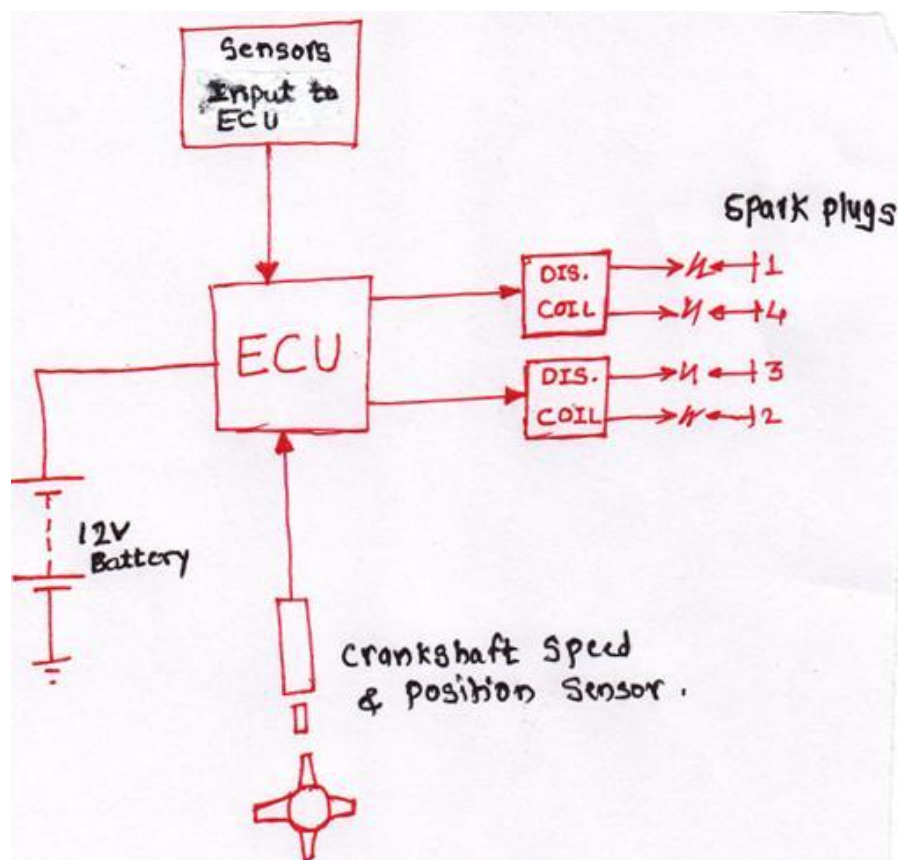 Sensors
Input to
ECU
Spark plugs
DIS.
COIL
1
4
ECU
DIS.
COIL
3
2
12V
Battery
Crankshaft Speed
& Position Sensor.